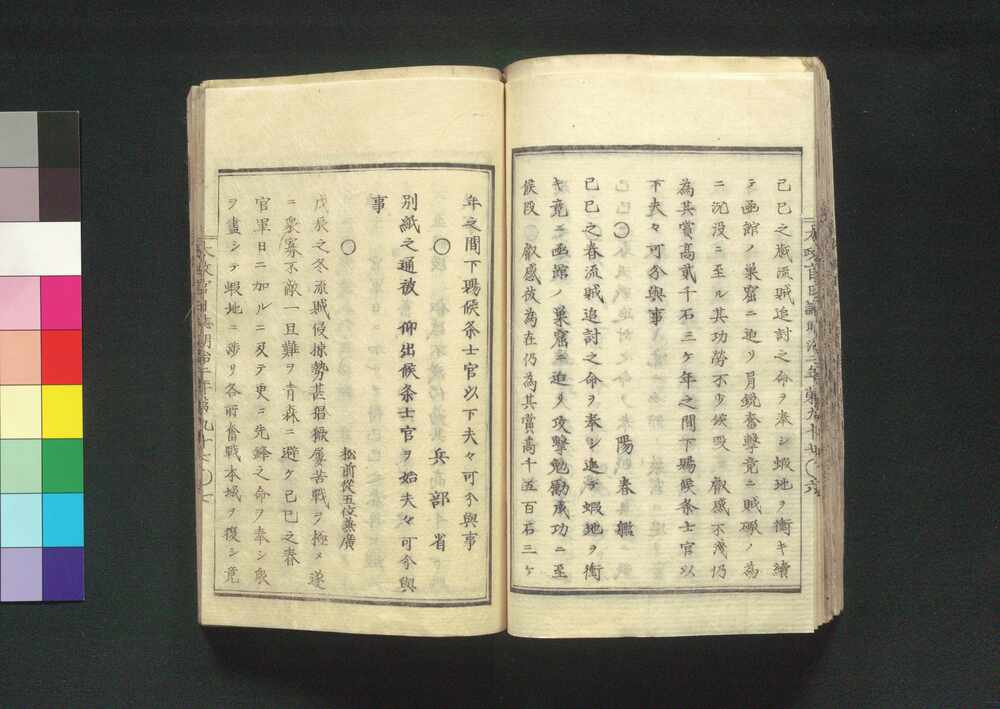 己巳之歳流賊追討之命ヲ奉シ蝦地ヲ衝キ續
テ函館ノ巣窟ニ迫リ冐鋭奮撃竟ニ賊砲ノ為
ニ沉没ニ至ル其功勞不少候段 叡感不淺仍
為其賞高貳千石三ケ年之間下賜候条士官以
下夫々可分與事
○ 陽春艦
己巳之春流賊追討之命ヲ奉シ進テ蝦地ヲ衝
キ竟ニ函館ノ巣窟ニ迫リ攻撃勉勵成功ニ至
候段 叡感被為在仍為其賞高千五百石三ケ
年之間下賜候条士官以下夫々可分與事
○ 兵部省
別紙之通被 仰出候条士官ヲ始夫々可分與
事
○ 松前從五位兼廣
戊辰之冬流賊侵掠勢甚猖獗屢苦戰ヲ極メ遂
ニ衆寡不敵一旦難ヲ青森ニ避ケ己巳之春
官軍日ニ加ルニ及テ更ニ先鋒之命ヲ奉シ衆
ヲ盡シテ蝦地ニ渉リ各所奮戰本城ヲ復シ竟